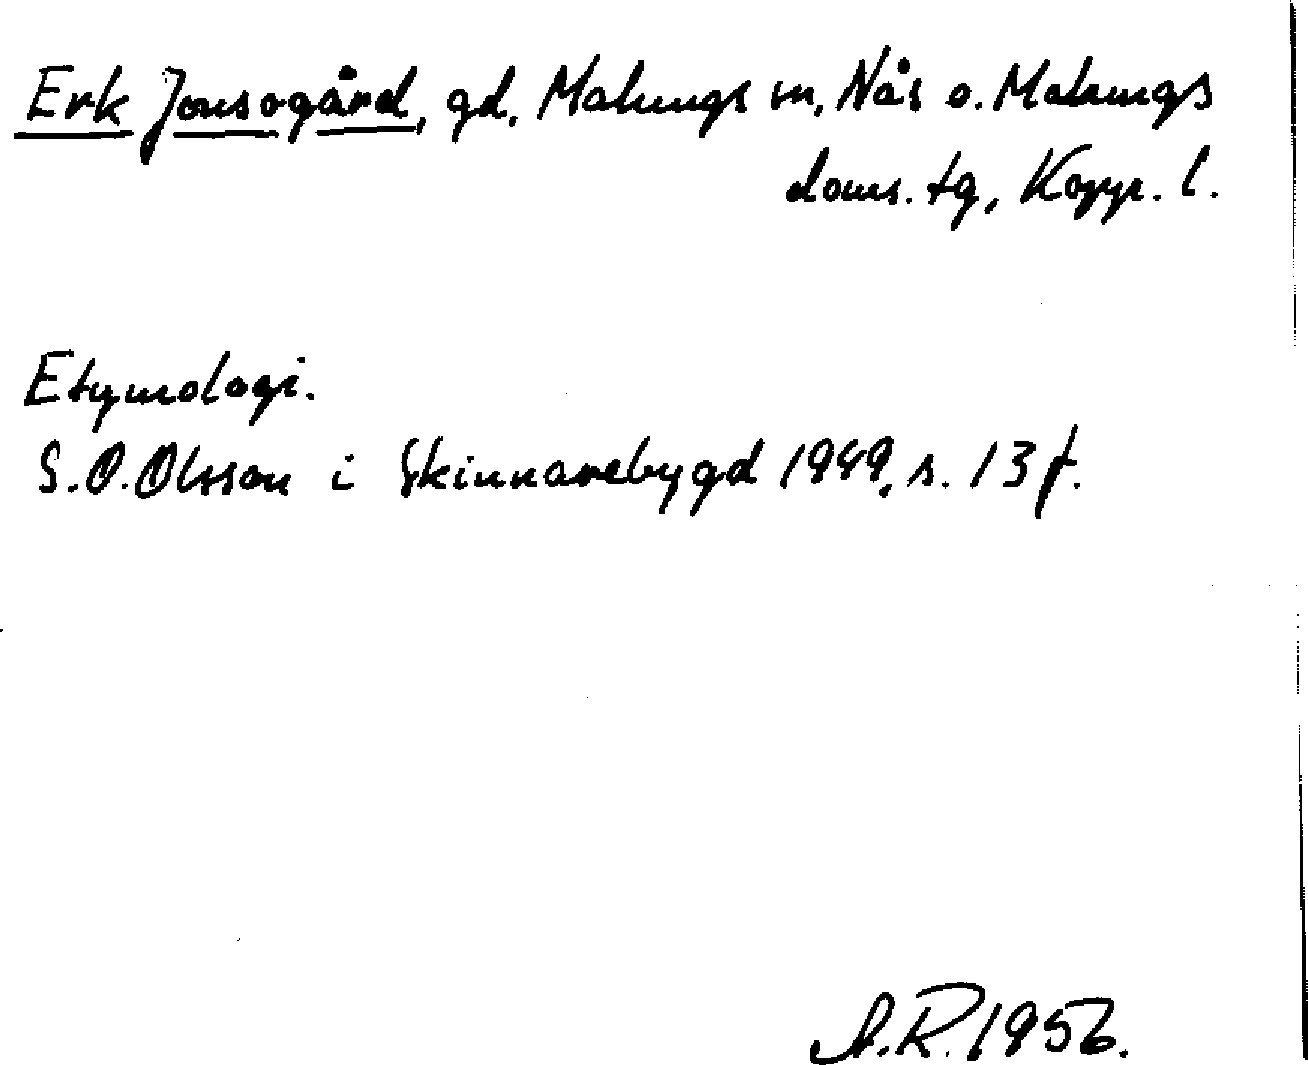 Erk Jonsogård, gd, Malungs sn, Nås o. Malungs
doms. tg, Kopp. l.
Etymologi.
S.O.Olsson i Skinnarebygd 1949, s. 13 f.
A.R. 1956.